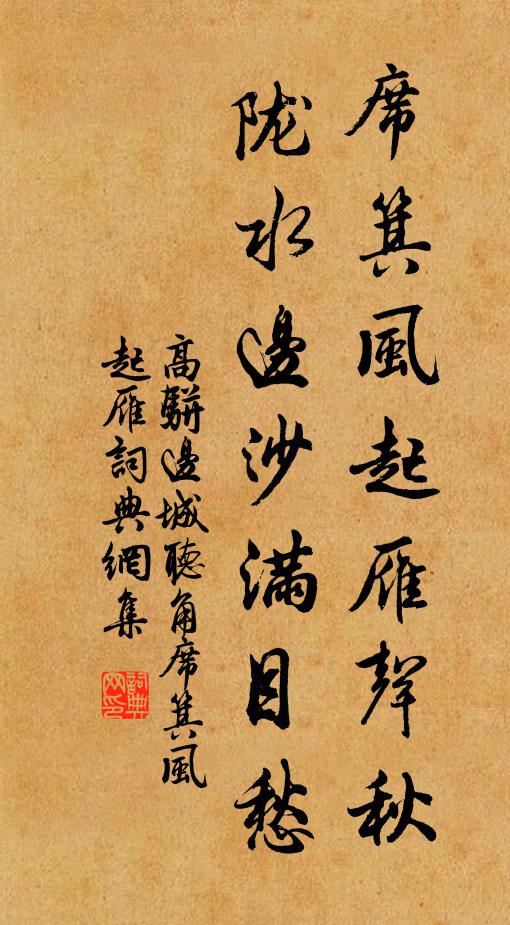 席箕風起雁聲秋
陇水邊沙滿目愁
高駢邊城聽角席箕風
起雁詞典網集
詞典网印